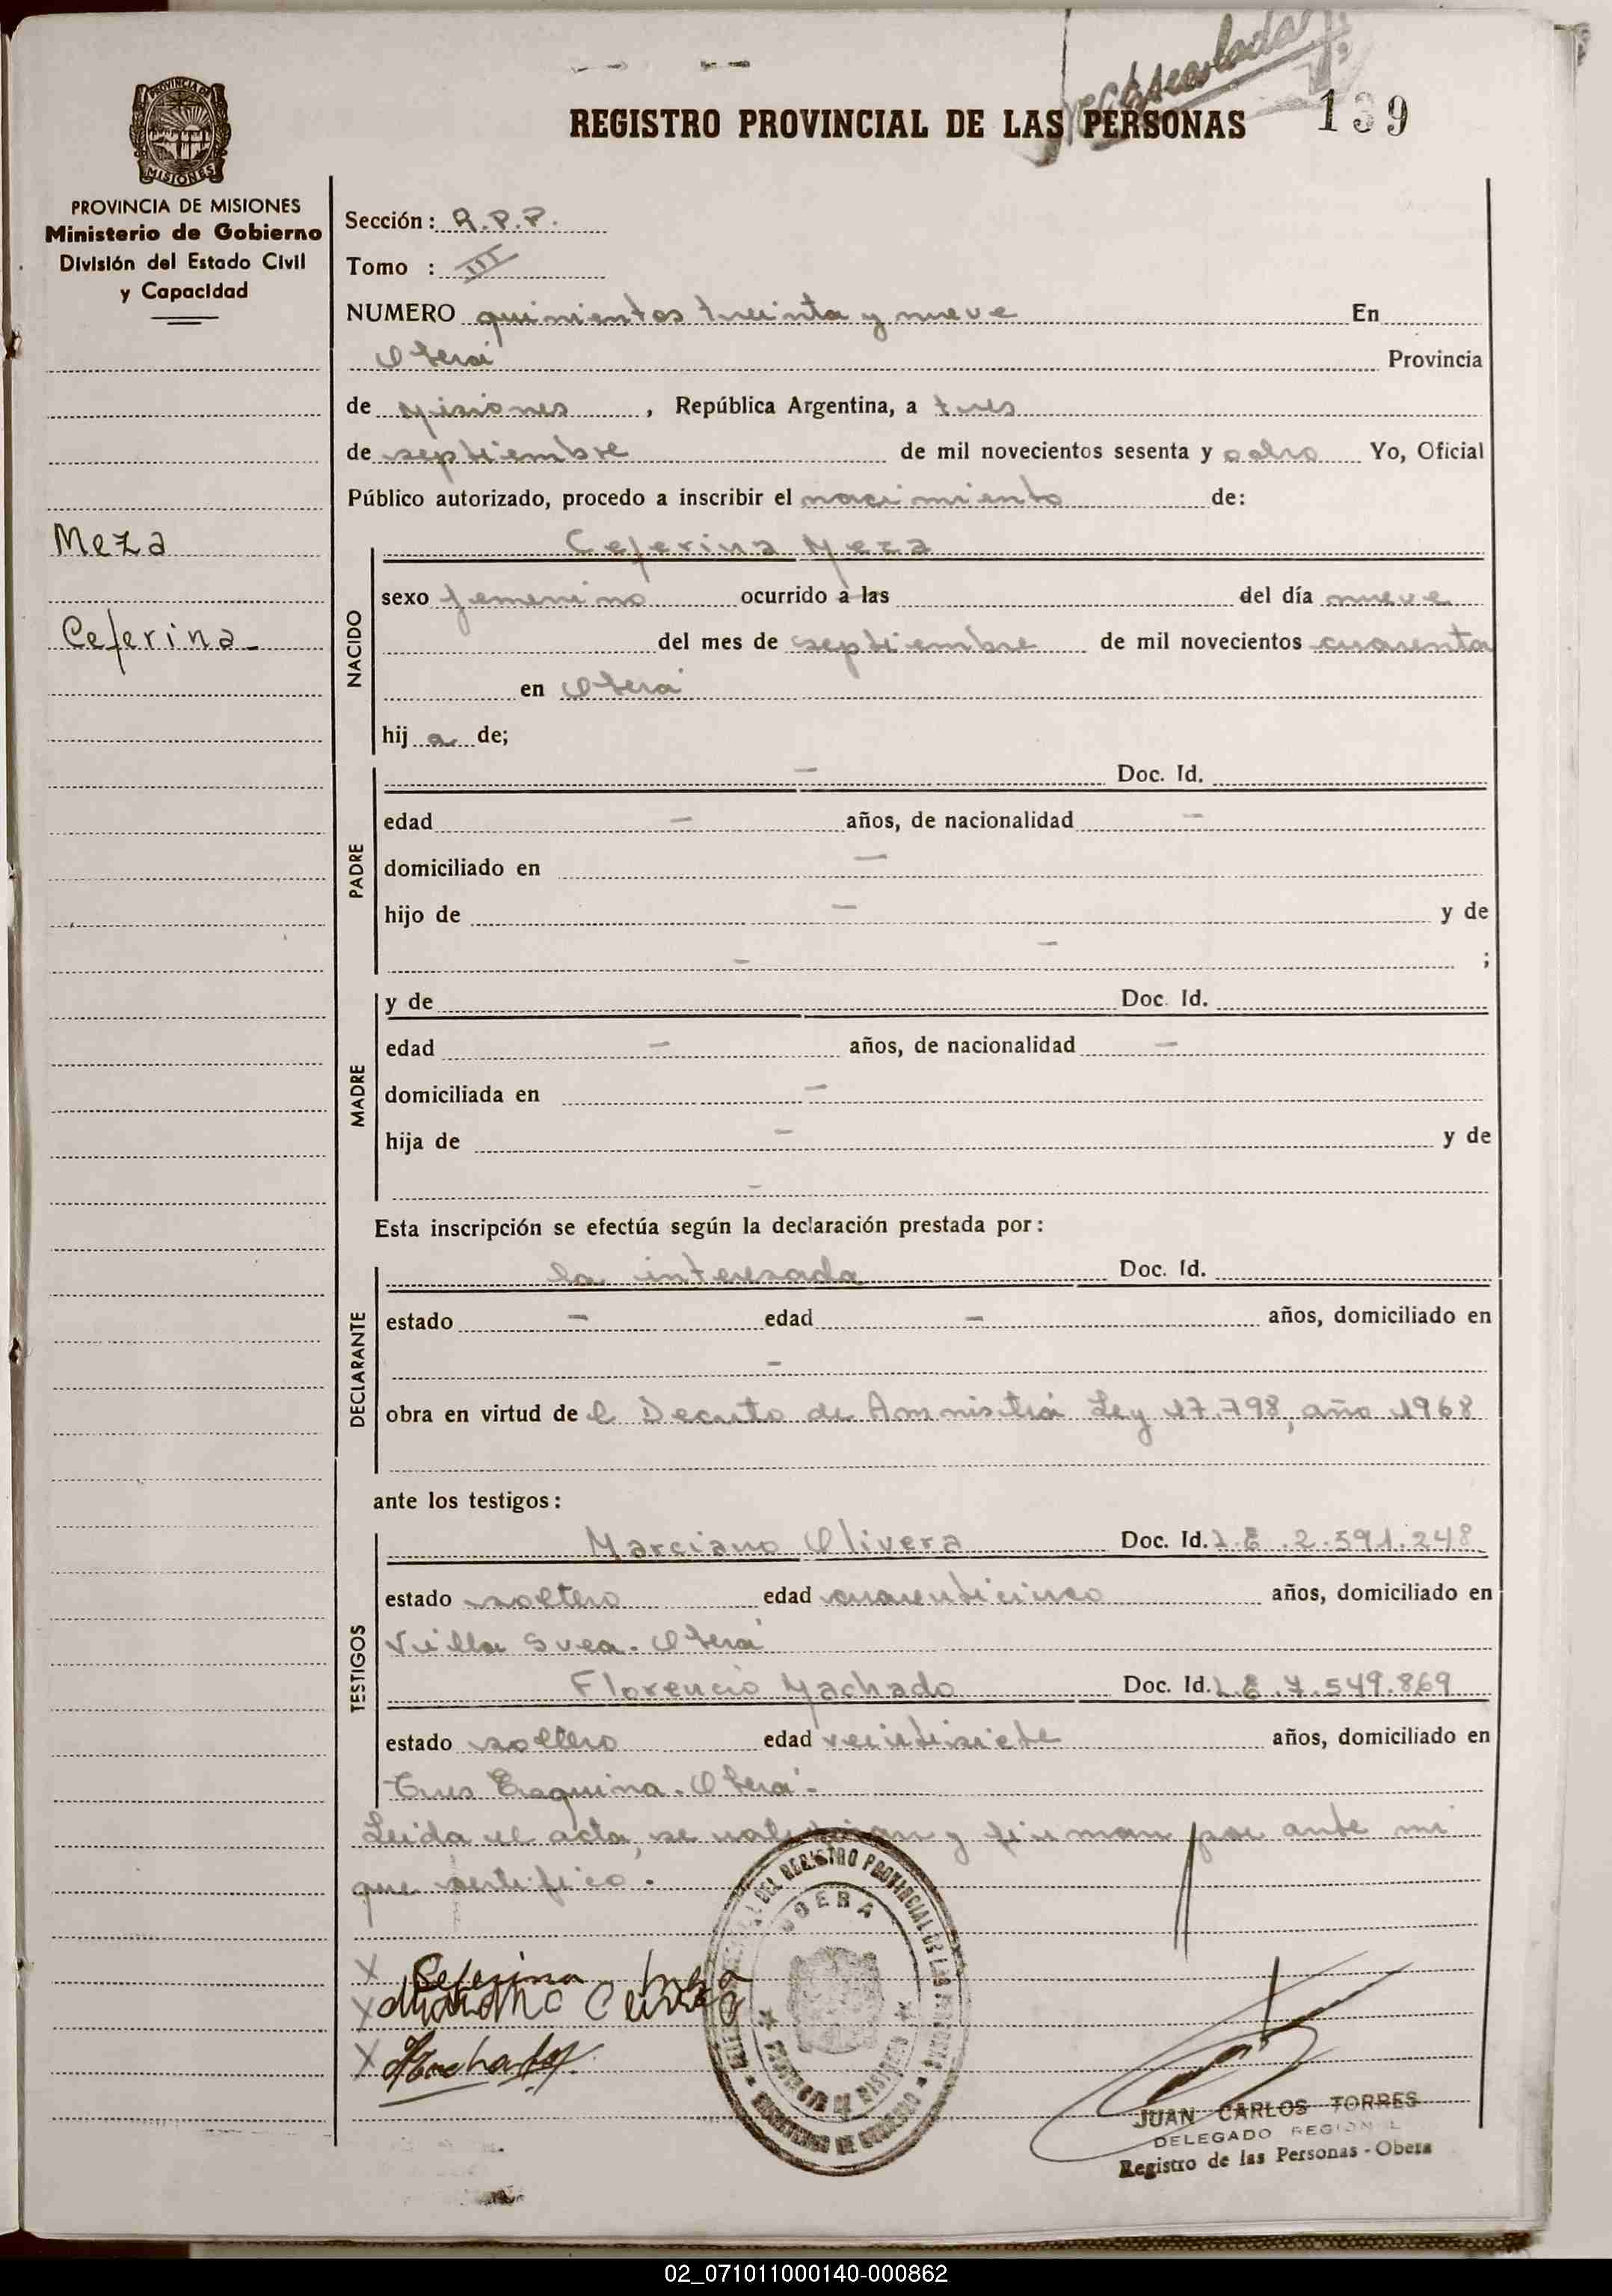 REGISTRO PROVINCIAL DE LAS PERSONAS 139
PROVINCIA DE MISIONES
PROVINCIA DE MISIONES
Ministerio de Gobierno
División del Estado Civil
y Capacidad
Sección: R.P.P.
Tomo : III
NUMERO quinientos treinta y nueve En
Oberá Provincia
de Misiones, República Argentina, a tres
de septiembre de mil novecientos sesenta y ocho Yo, Oficial
Público autorizado, procedo a inscribir el nacimiento de:
Meza
Ceferina
NACIDO
Ceferina Meza
sexo femenino ocurrido a las del día nueve
del mes de septiembre de mil novecientos cuarenta
en Oberá
hij a de;
PADRE
— Doc. Id.
edad — años, de nacionalidad —
domiciliado en —
hijo de — y de
— — ;
MADRE
y de Doc. Id.
edad — años, de nacionalidad —
domiciliada en —
hija de — y de
—
Esta inscripción se efectúa según la declaración prestada por:
DECLARANTE
la interesada Doc. Id.
estado — edad — años, domiciliado en
—
obra en virtud de l Decreto de Amnistiá Ley 17.798, año 1968
ante los testigos:
TESTIGOS
Marciano Olivera Doc. Id. L.E. 2.591.248
estado soltero edad cuarenticinco años, domiciliado en
Villa Svea. Oberá
Florencio Machado Doc. Id. L.E. 7.549.869
estado soltero edad veintisiete años, domiciliado en
Tres Esquina. Oberá.-
Leida el acta, se y firman por ante mi
que certifico.
X Ceferina Meza
X
X Machado
DEL REGISTRO PROVINCIAL DE LAS PERSONAS
OBERA
PROVINCIA DE MISIONES
MINISTERIO DE GOBIERNO
JUAN CARLOS TORRES
DELEGADO REGIONAL
Registro de las Personas - Obera
02_071011000140-000862